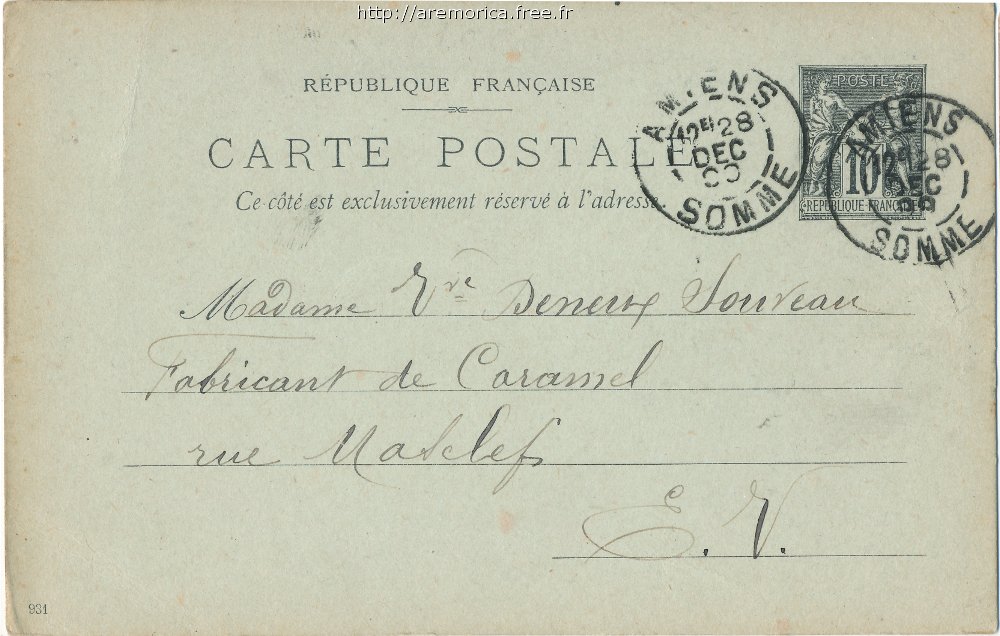 http://aremorica.free.fr
RÉPUBLIQUE FRANÇAISE
CARTE POSTALE
Ce côté est exclusivement réservé à l'adresse.
AMIENS
12E 28
DEC
00
SOMME
POSTES
10
REPUBLIQUE FRANÇAISE
AMIENS
12E 28
DEC
00
SOMME
Madame Vve Deneux Souveau
Fabricant de Caramel
rue Masclef
E. V.
931